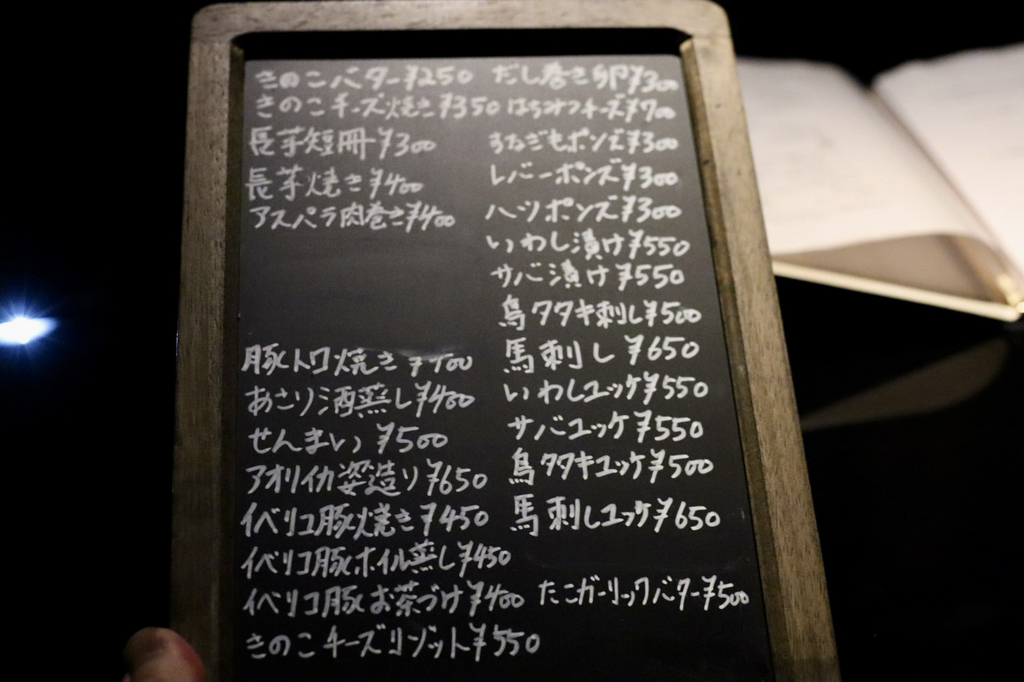 きのこバター¥250 だし巻き卵¥300
きのこチーズ焼き¥350 はちみつチーズ¥700
長芋短冊¥300 すなぎもポンズ¥300
長芋焼き¥400 レバーポンズ¥300
アスパラ肉巻き¥400 ハツポンズ¥300
いわし漬け¥550
サバ漬け¥550
鳥タタキ刺し¥500
豚トロ焼き¥400 馬刺し¥650
あさり酒蒸し¥400 いわしユッケ¥550
せんまい¥500 サバユッケ¥550
アオリイカ姿造り¥650 鳥タタキユッケ¥500
イベリコ豚焼き¥450 馬刺しユッケ¥650
イベリコ豚ホイル蒸し¥450
イベリコ豚お茶づけ¥400 たこガーリックバター¥500
きのこチーズリゾット¥550